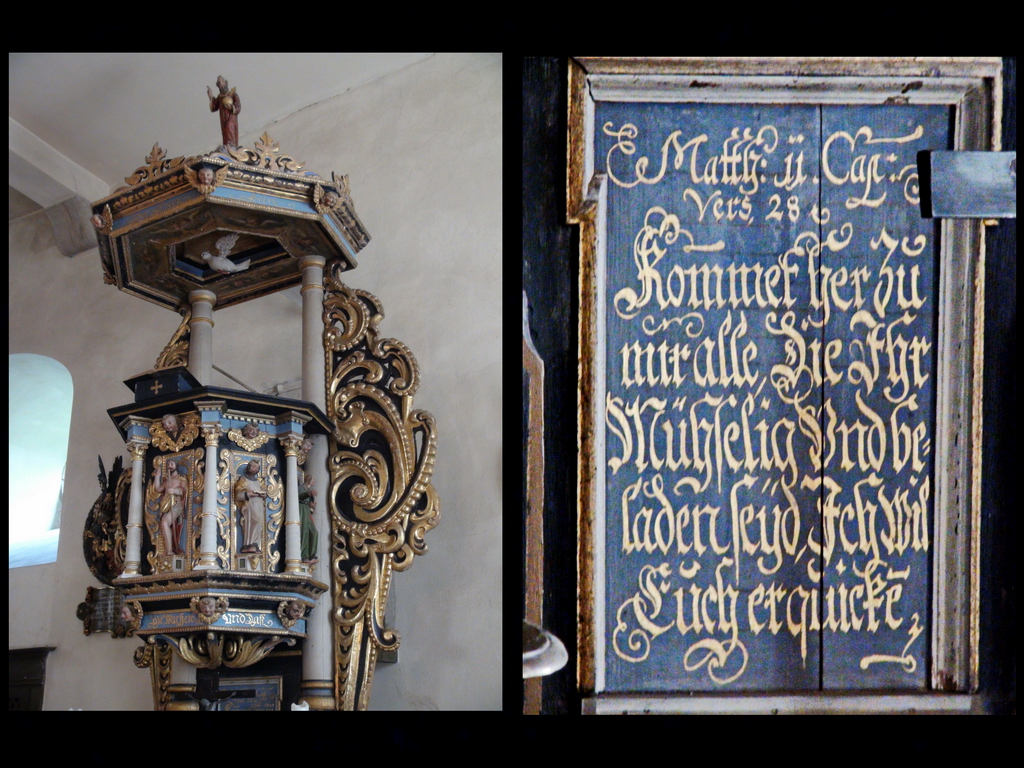 E Matth: ii. Cap:
Vers, 28
Kommet her zu
mir alle, Die Ihr
Mühselig Vnd be-
laden seÿd, Ich Wil
Euch erquicke͞
Vnd